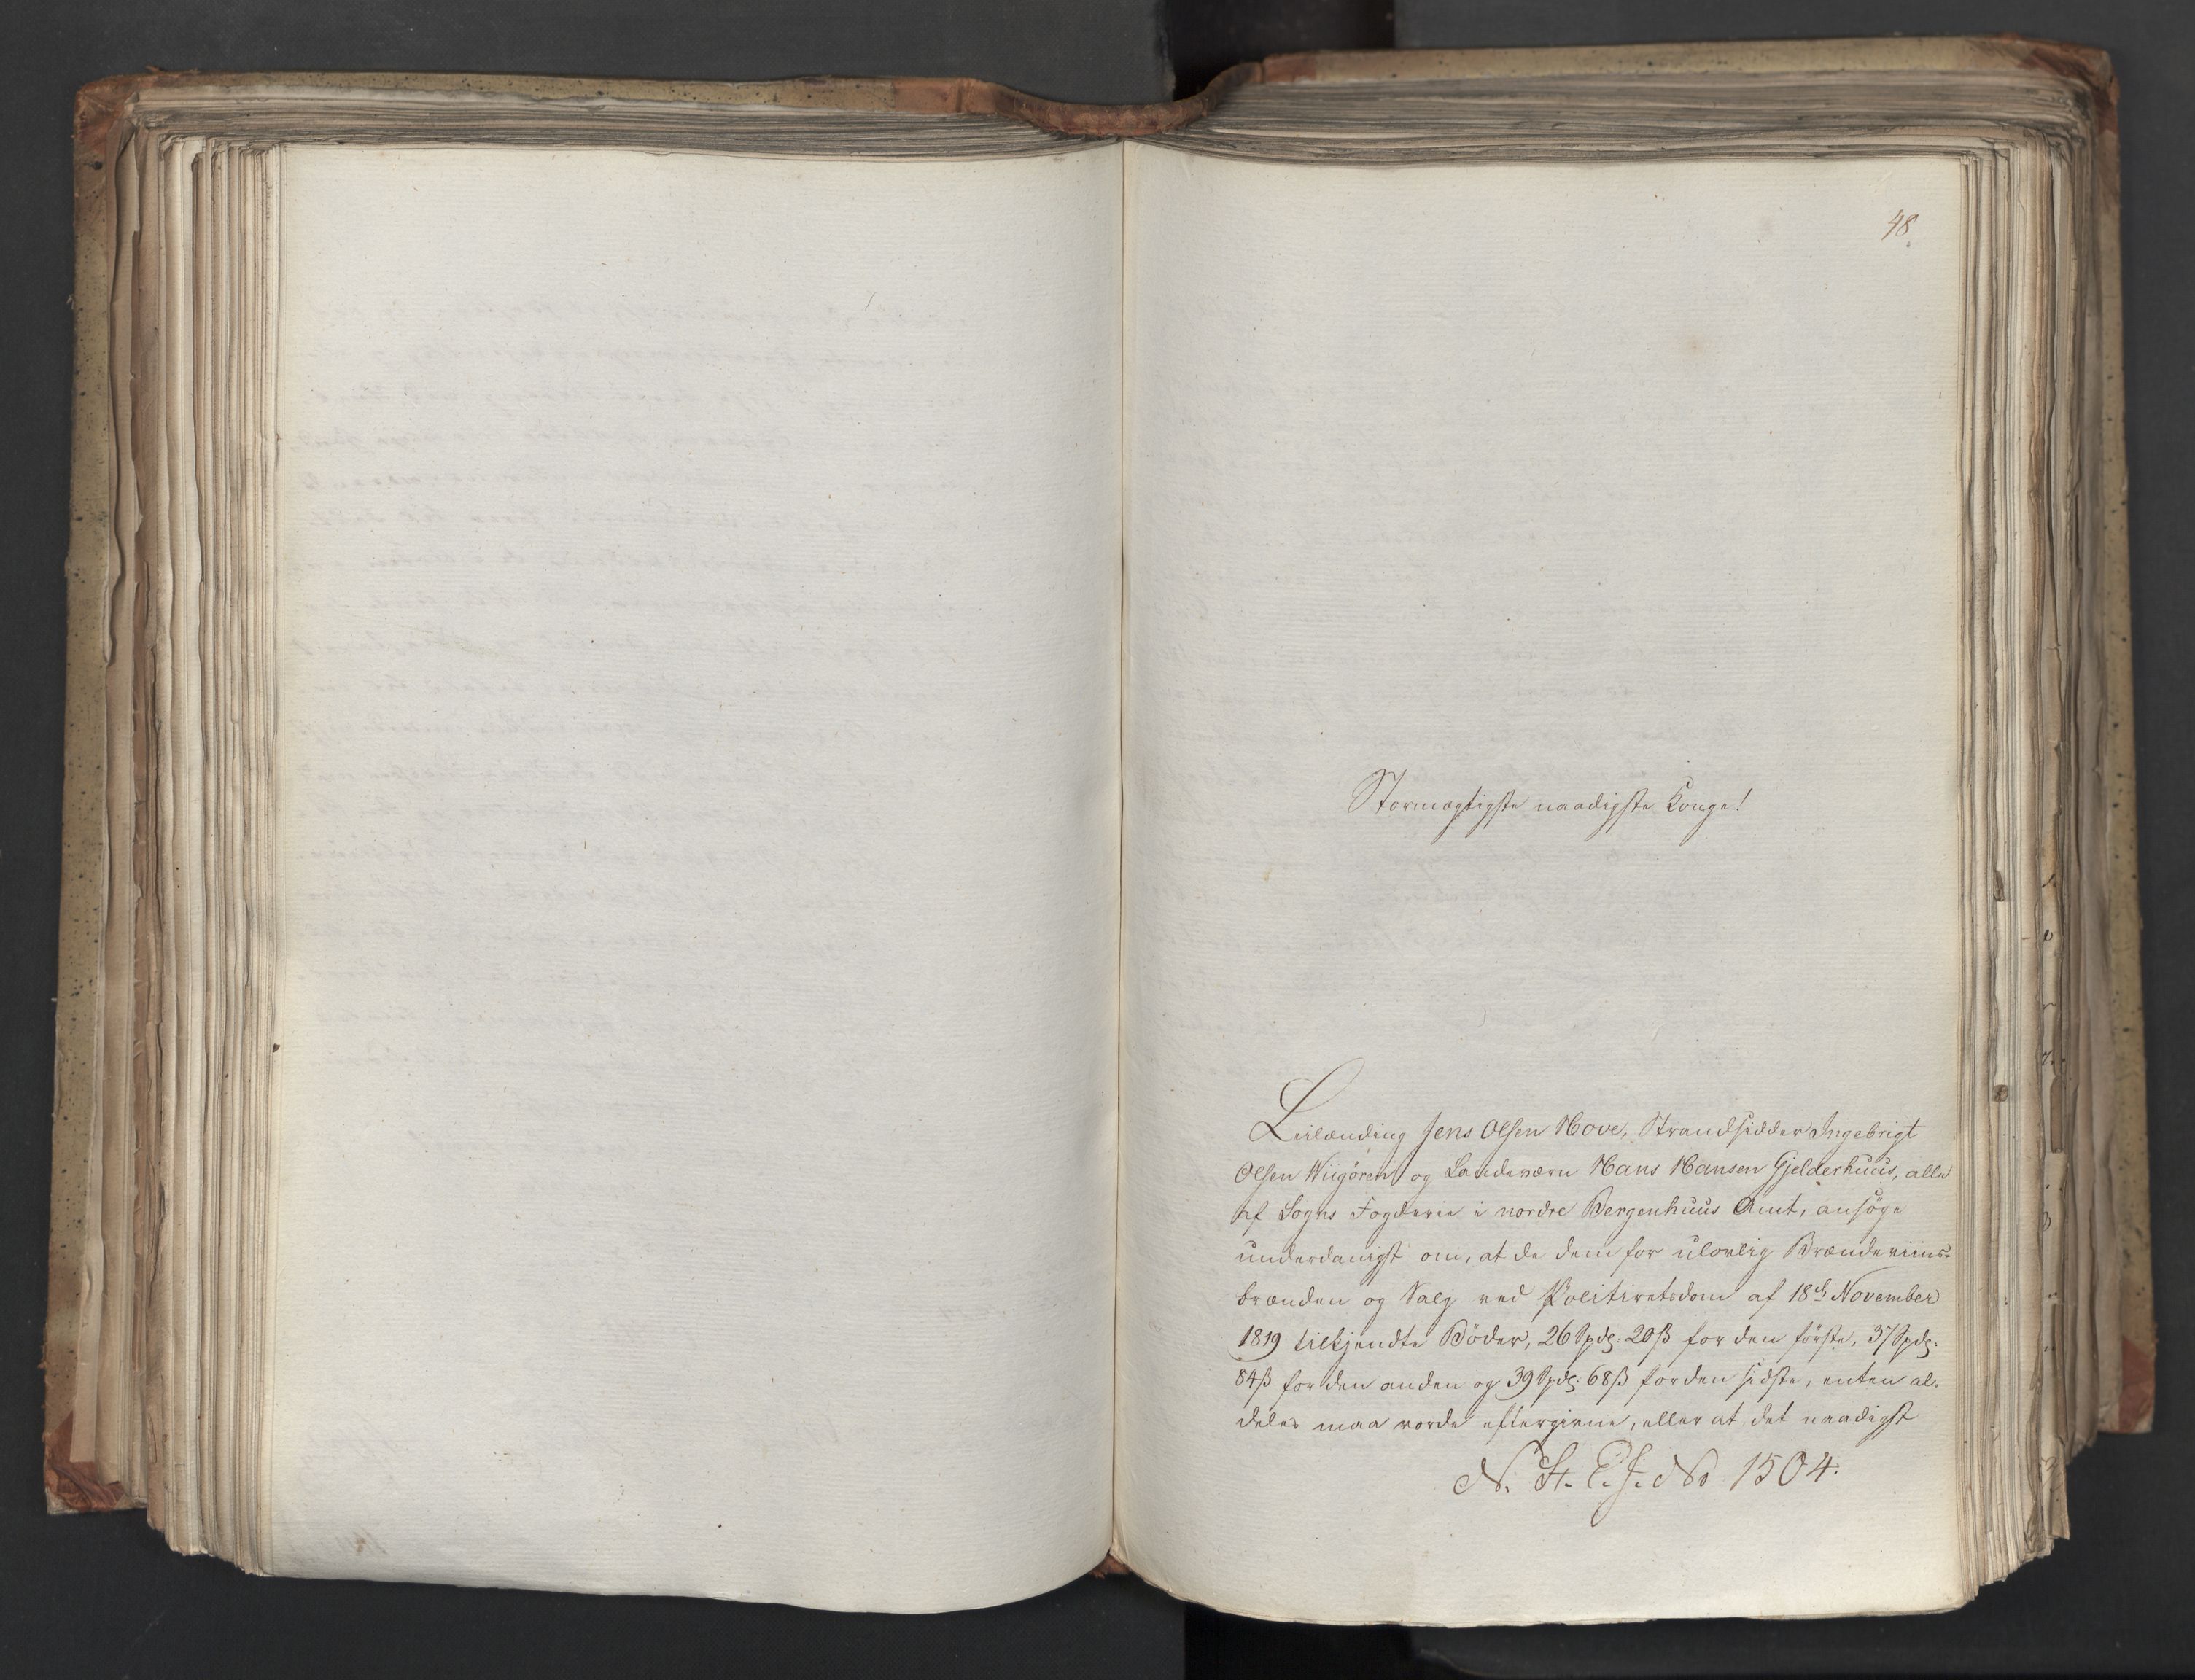 48
Stormægtigste naadigste Konge!
Leilænding Jens Olsen Hove, Strandsidder Ingebrigt
Olsen Wiigören og Landeværn Hans Hansen Gjelderhuus, alle
af Sogns Fogderie i nordre Bergenhuus Amt, ansöge
underdanigst om, at de dem for ulovlig Brændeviins-
brænden og Salg ved Politiretsdom af 18de November
1819 tilkjendte Böder, 26 Spdl: 20 ß for den förste, 37 Spdl:
84 ß for den anden og 39 Spdl: 68 ß for den sidste, enten al-
deles maa vorde eftergivne, eller at det naadigst
N. St. E. J. No 1504.